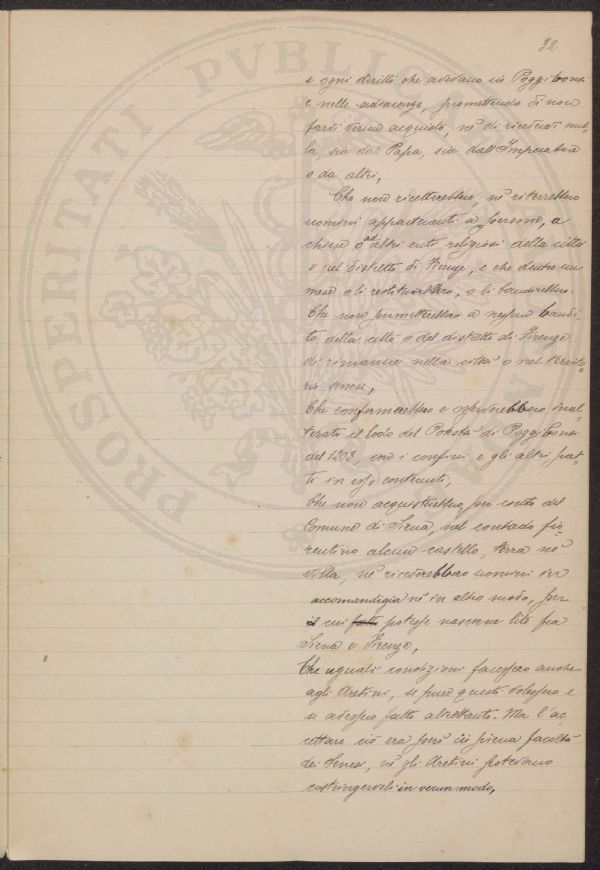 32
e ogni diritto che avevano in Poggibonsi
e nelle adiacenze, promettendo di non
farvi verun acquisto, nè di ricevervi nul-
la, sia dal Papa, sia dall'Imperatore
o da altri,
Che non ricetterebbero, nè riterrebbero
uomini appartenenti a persone, a
chiese o ad altri enti religiosi della città
o nel distretto di Firenze, e che dentro un
mese o li restituirebbero, o li bandirebbero.
Che non permetterebbero a nessun bandi-
to della città o del distretto di Firenze
di rimanere nella città o nel territo-
rio senese,
Che confermerebbero e osserverebbero inal-
terato il lodo del Potestà di Poggibonsi
del 1203, con i confini e gli altri pat-
ti in esso contenuti,
Che non acquisterebbero, per conto del
Comune di Siena, nel contado fio-
rentino alcun castello, terra nè
villa, nè riceverebbero uomini in
accomandigia nè in altro modo, per
il cui fatto potesse nascerne lite fra
Siena e Firenze,
Che uguali condizioni facessero anche
agli Aretini, se pure questi volessero e
se avessero fatto altrettanto. Ma l'ac-
cettare ciò era però in piena facoltà
dei Senesi, nè gli Aretini potevano
costringerveli in verun modo,
PROSPERITATI PVBLICAE